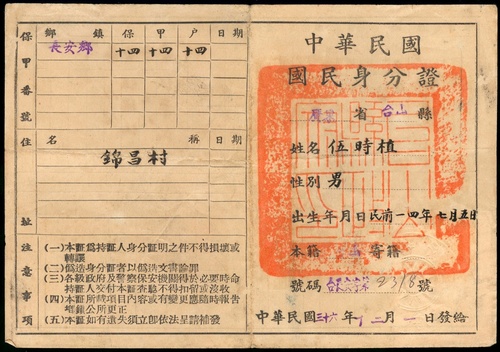 中華民國
國民身分證
省台山縣
姓名 伍時植
性別 男
出生年月日 民前一四年七月五日
本籍 寄籍
號碼 2318號
中華民國三十六年十二月一日發給
保甲番號
鄉鎮 保 甲 戶 日期
長安鄉 十四 十四 十四
住址
名稱 日期
錦昌村
注意事項
(一)本証為持証人身分証明之件不得損壞或
轉讓
(二)偽造身分證者以偽造文書論罪
(三)各級政府及警察保安機關得於必要時命
持証人交付本証查驗不得扣留或沒收
(四)本証所載項目內容或有變更應隨時報告
鄉鎮公所更正
(五)本証如有遺失須立即依法呈請補發